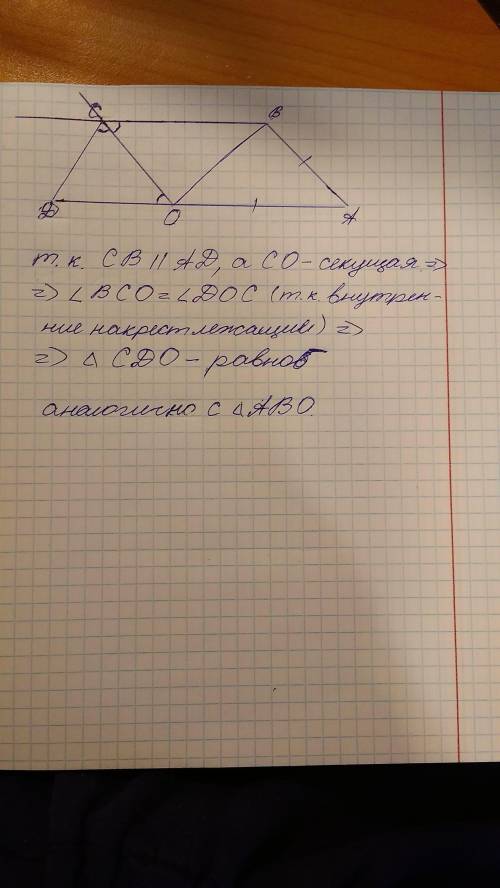 C B
D O A
т.к. CB || AD, а CO - секущая =>
=> ∠BCO = ∠DOC (т.к. внутрен-
ние накрестлежащие) =>
=> △ CDO - равноб
аналогично с △ABO.